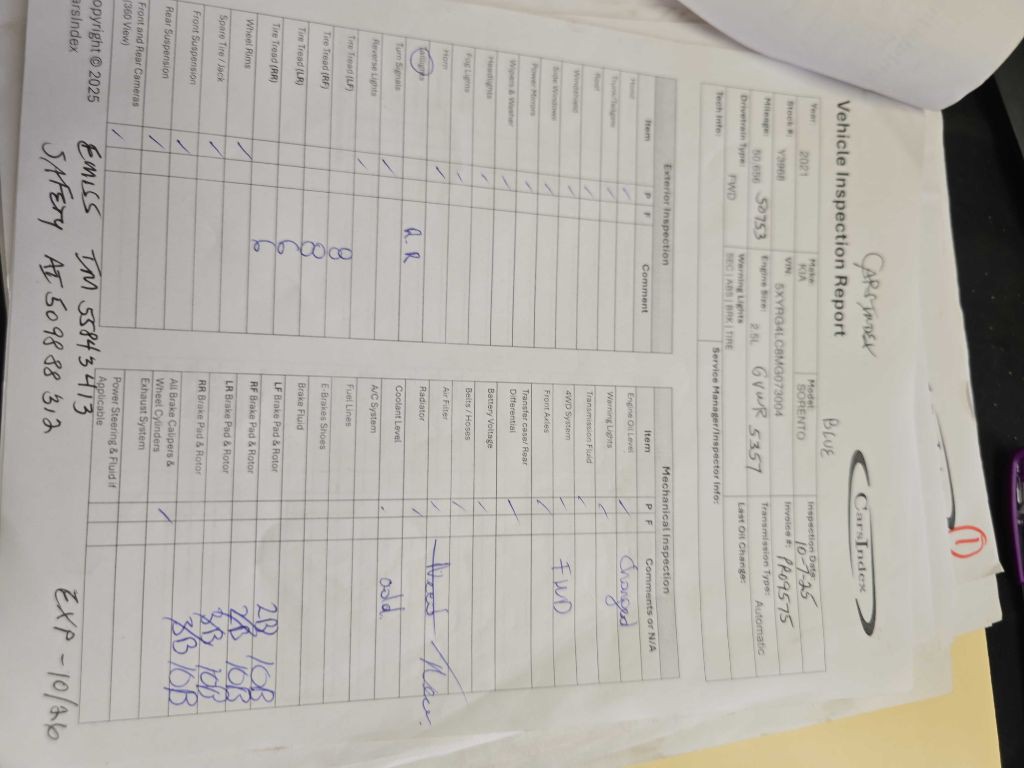 1
CARSINDEX
BLUE
CarsIndex
Vehicle Inspection Report
Year: 2021
Make: KIA
Model: SORENTO
Inspection Date: 10-7-25
Stock #: Y3968
VIN: 5XYRG4LC8MG073004
Invoice #: PRO9575
Mileage: 50,656 50753
Engine Size: 2.5L GVWR 5357
Transmission Type: Automatic
Drivetrain Type: FWD
Warning Lights: SEC | ABS | BRK | TIRE
Last Oil Change:
Tech Info:
Service Manager/Inspector Info:
Exterior Inspection
Item P F Comment
Hood ✓
Trunk/Tailgate ✓
Roof ✓
Windshield ✓
Side Windows ✓
Power Mirrors ✓
Wipers & Washer ✓
Headlights ✓
Fog Lights ✓
Horn ✓
Taillights R.R
Turn Signals ✓
Reverse Lights ✓
Tire Tread (LF) 8
Tire Tread (RF) 8
Tire Tread (LR) 6
Tire Tread (RR) 6
Wheel Rims ✓
Spare Tire / Jack ✓
Front Suspension ✓
Rear Suspension ✓
Front and Rear Cameras
(360 View) ✓
Mechanical Inspection
Item P F Comments or N/A
Engine Oil Level ✓ Changed
Warning Lights ✓
Transmission Fluid ✓
4WD System ✓ FWD
Front Axles ✓
Transfer case/ Rear
Differential ✓
Battery Voltage ✓
Belts / Hoses ✓
Air Filter ✓
Radiator ✓
Coolant Level
A/C System cold.
Fuel Lines
E-Brake Shoes
Brake Fluid
LF Brake Pad & Rotor 2B 10B
RF Brake Pad & Rotor 2B 10B
LR Brake Pad & Rotor 3B 10B
RR Brake Pad & Rotor 3B 10B
All Brake Calipers &
Wheel Cylinders ✓
Exhaust System
Power Steering & Fluid if
Applicable
opyright © 2025
arsIndex
EMISS IM 55843413
SAFETY AI 509888 312
EXP - 10/26